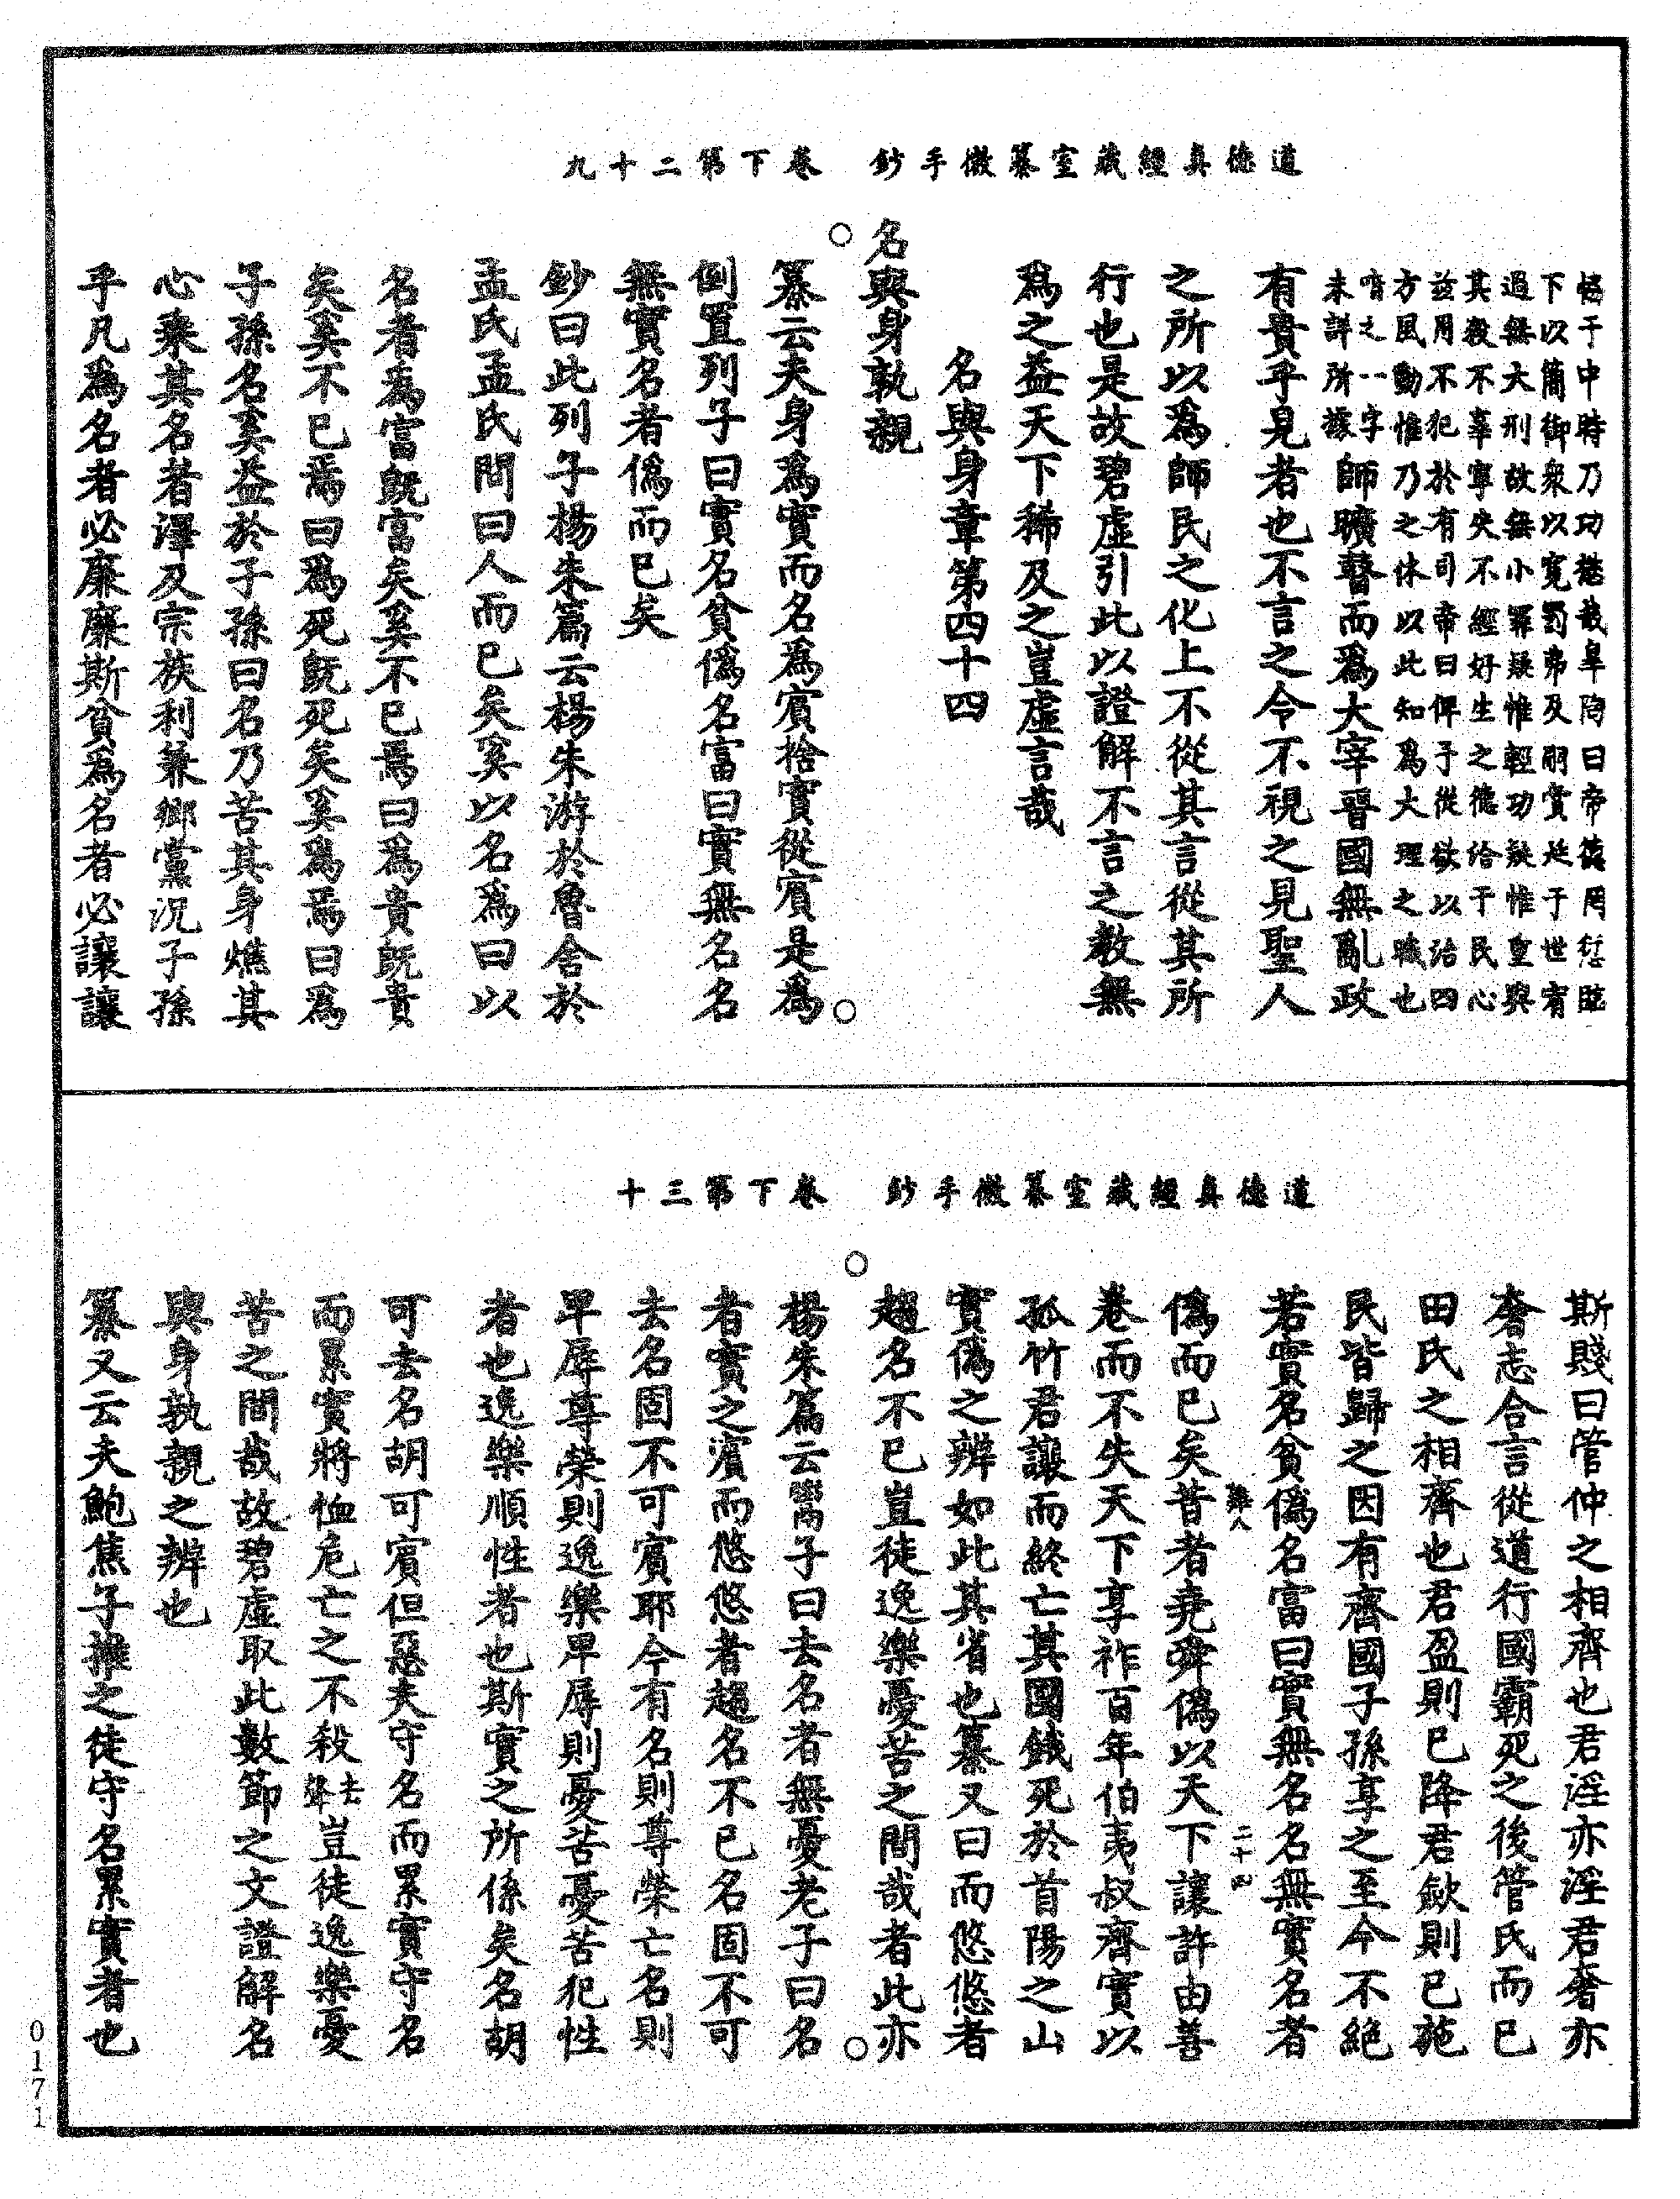 道德真經藏室纂微手鈔　卷下第二十九
悟于中時乃功懋哉皐陶曰帝德罔愆臨
下以簡御衆以寬罰弗及嗣賞延于世宥
過無大刑故無小罪疑惟輕功疑惟重與
其殺不辜寧失不經好生之德洽于民心
茲用不犯於有司帝曰俾予從欲以治四
方風動惟乃之休以此知爲大理之職也
喑之一字
未詳所據師曠瞽而爲大宰晉國無亂政
有貴乎見者也不言之令不視之見聖人
之所以爲師民之化上不從其言從其所
行也是故碧虛引此以證解不言之教無
爲之益天下稀及之豈虛言哉
名與身章第四十四
名與身孰親
纂云夫身爲實而名爲賓捨實從賓是爲
倒置列子曰實名貧僞名富曰實無名名
無實名者僞而已矣
鈔曰此列子楊朱篇云楊朱游於魯舍於
孟氏孟氏問曰人而已矣奚以名爲曰以
名者爲富既富矣奚不已焉曰爲貴既貴
矣奚不已焉曰爲死既死矣奚爲焉曰爲
子孫名奚益於子孫曰名乃苦其身燋其
心乘其名者澤及宗族利兼鄉黨況子孫
乎凡爲名者必廉廉斯貧爲名者必讓讓
道德真經藏室纂微手鈔　卷下第三十
斯賤曰管仲之相齊也君淫亦淫君奢亦
奢志合言從道行國霸死之後管氏而已
田氏之相齊也君盈則已降君歛則已施
民皆歸之因有齊國子孫享之至今不絕
若實名貧僞名富曰實無名名無實名者
二十四
僞而已矣昔者堯舜僞以天下讓許由善
卷而不失天下享祚百年伯夷叔齊實以
孤竹君讓而終亡其國餓死於首陽之山
實僞之辨如此其省也纂又曰而悠悠者
趨名不已豈徒逸樂憂苦之間哉者此亦
楊朱篇云鬻子曰去名者無憂老子曰名
者實之濱而悠悠者趨名不已名固不可
去名固不可賓耶今有名則尊榮亡名則
卑辱尊榮則逸樂卑辱則憂苦憂苦犯性
者也逸樂順性者也斯實之所係矣名胡
可去名胡可賓但惡夫守名而累實守名
而累實將恤危亡之不殺去聲豈徒逸樂憂
苦之間哉故碧虛取此數節之文證解名
與身孰親之辨也
纂又云夫鮑焦子推之徒守名累實者也
0171